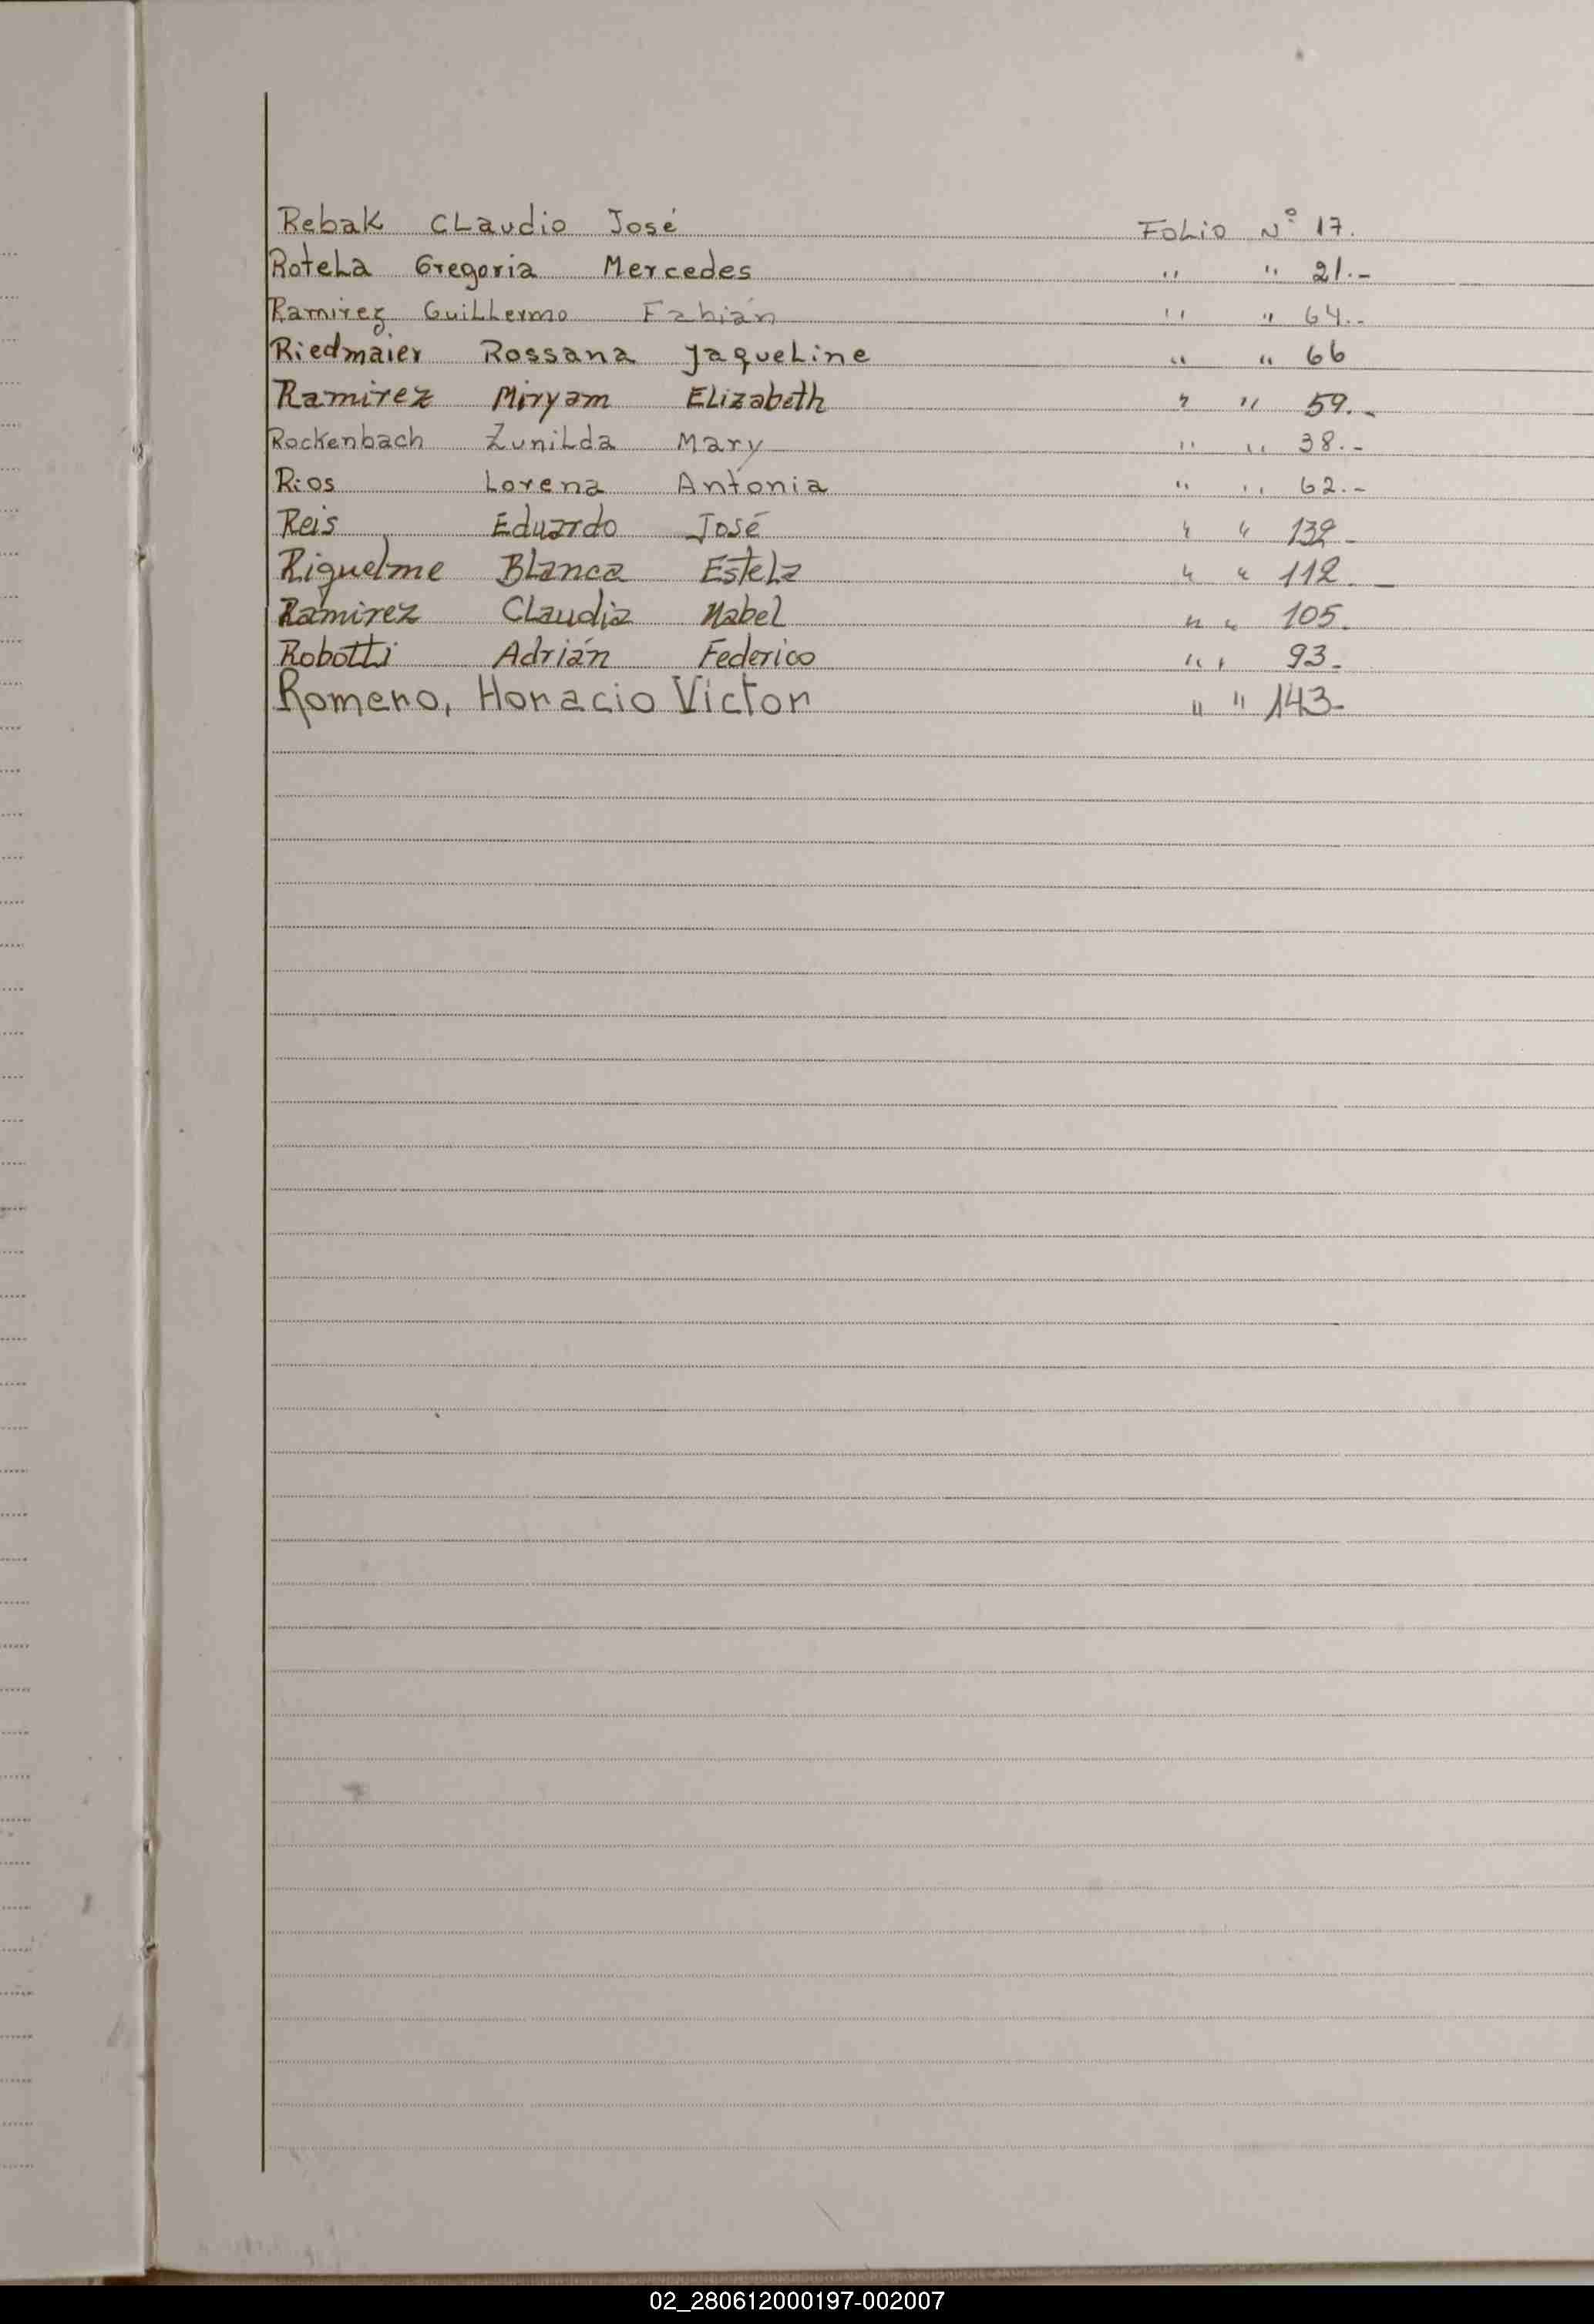 Rebak Claudio José Folio N° 17.
Rotela Gregoria Mercedes " " 21.-
Ramirez Guillermo Fabián " " 64.-
Riedmaier Rossana Jaqueline " " 66
Ramirez Miryam Elizabeth " " 59.-
Rockenbach Zunilda Mary " " 38.-
Rios Lorena Antonia " " 62.-
Reis Eduardo José " " 132.-
Riquelme Blanca Estela " " 112.-
Ramirez Claudia Mabel " " 105.
Robotti Adrián Federico " " 93.-
Romero, Horacio Victor " " 143-
02_280612000197-002007